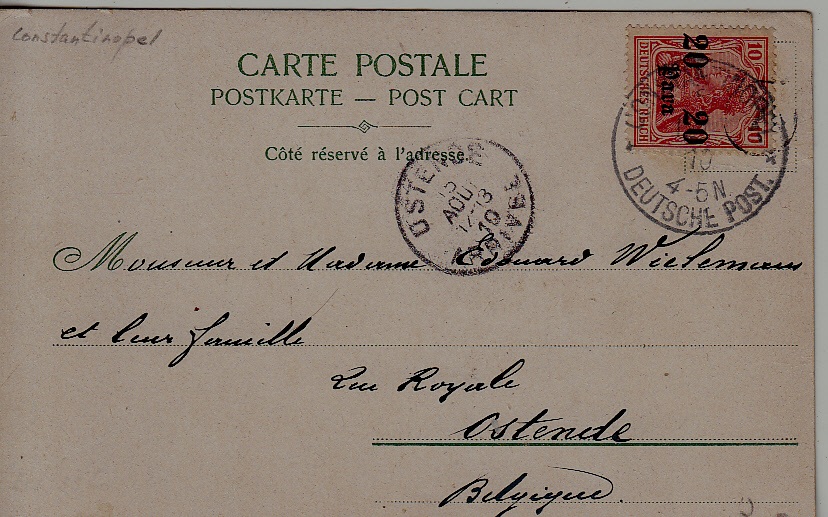 Constantinopel
CARTE POSTALE
POSTKARTE — POST CART
Côté réservé à l'adresse.
10 DEUTSCHES REICH 10
20 Para 20
10
4-5N.
DEUTSCHE POST.
OSTENDE
13
AOUT
12-13
10
Monsieur et Madame Edouard Wielemans
et leur famille
Rue Royale
Ostende
Belgique.